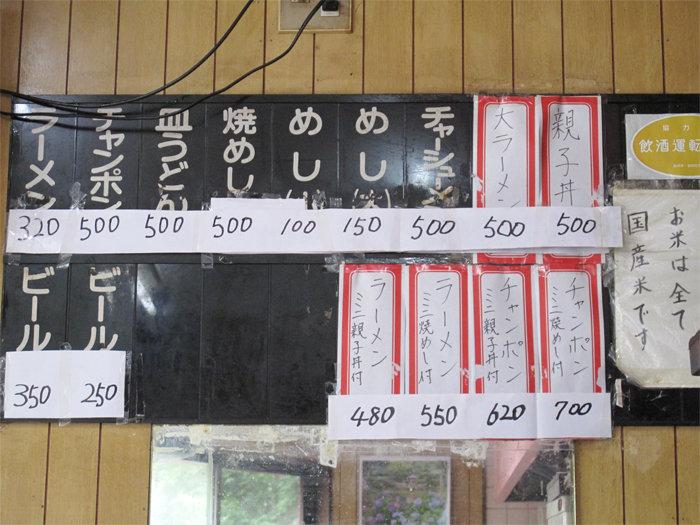 親子丼
500
大ラーメン
500
チャーシュー
500
めし(大)
150
めし(小)
100
焼めし
500
皿うどん
500
チャンポン
500
ラーメン
320
チャンポン
ミニ焼めし付
700
チャンポン
ミニ親子丼付
620
ラーメン
ミニ焼めし付
550
ラーメン
ミニ親子丼付
480
ビール
250
ビール
350
協力
飲酒運転
お米は全て
国産米です